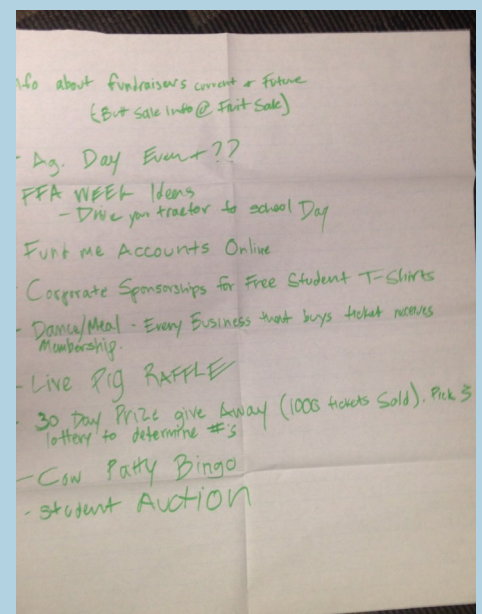 Info about fundraisers current + Future
(But Sale Info @ Fruit Sale)
- Ag. Day Event??
FFA WEEK Ideas
- Drive your tractor to school Day
Fund me Accounts Online
- Corporate Sponsorships for Free Student T-Shirts
- Dance/Meal - Every Business that buys ticket receives
Membership.
- Live Pig RAFFLE
- 30 Day Prize give Away (1000 tickets Sold). Pick 3
lottery to determine #'s
- Cow Patty Bingo
- Student Auction